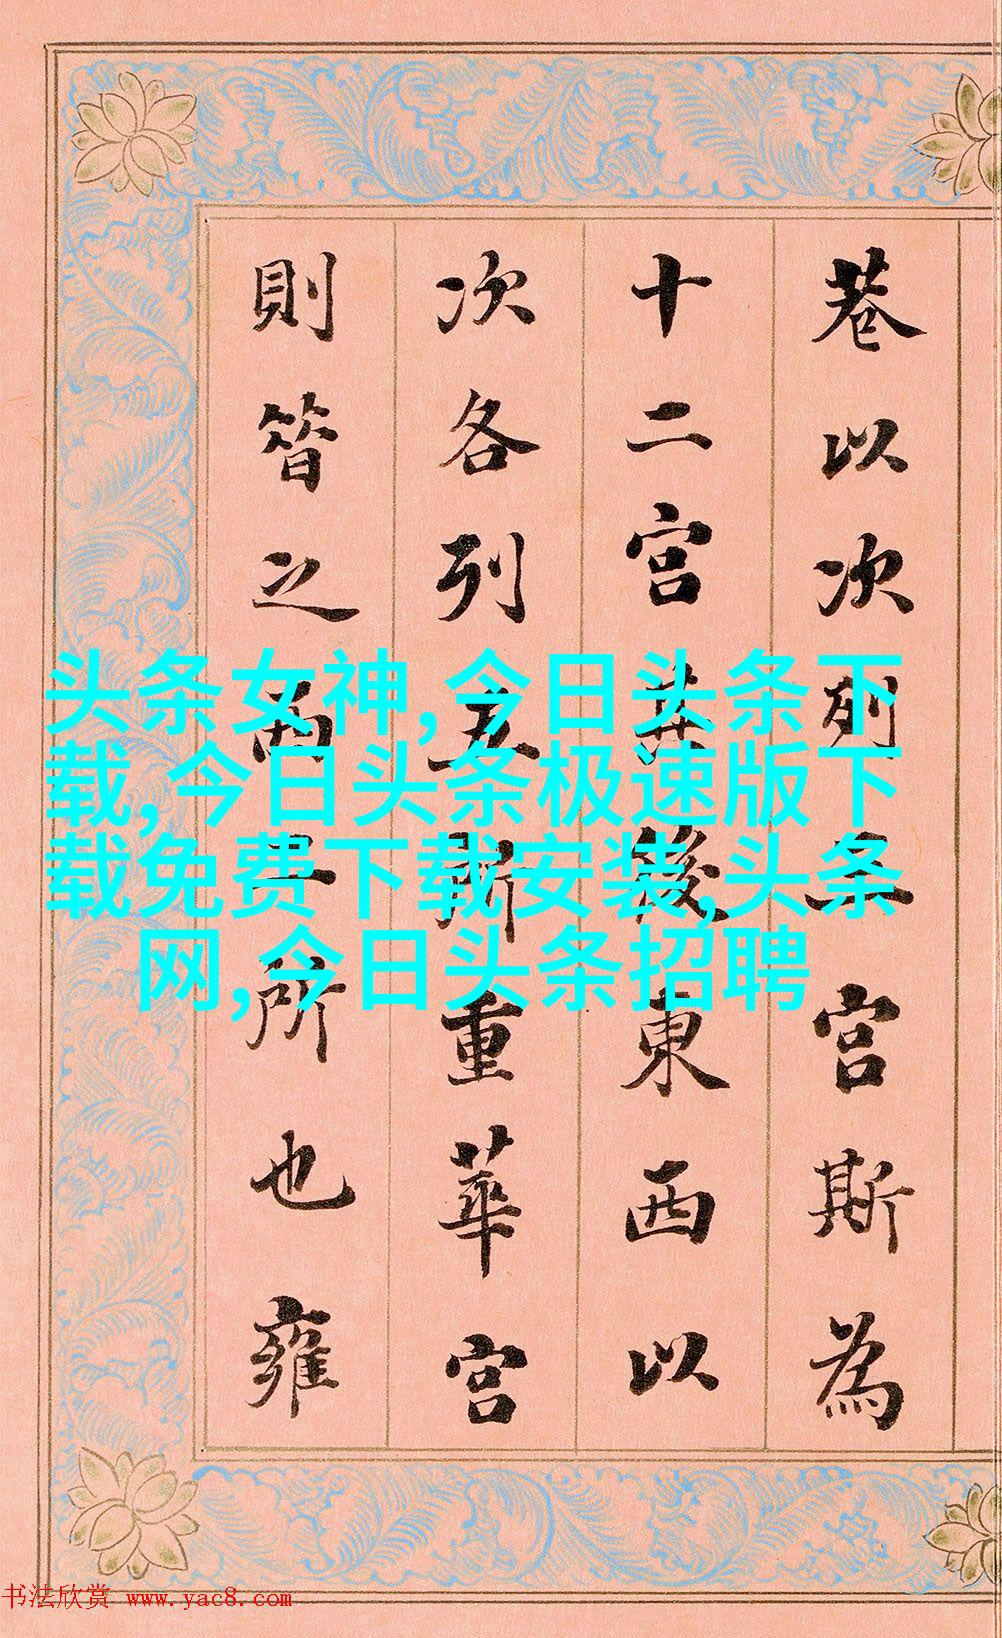 巷以次列三宫斯為
十二宫其後東西以
次各列五所重華宫
則昔之西二所也雍
头条女神,今日头条下
载,今日头条极速版下
载免费下载安装,头条
网,今日头条招聘
书法欣赏 www.yac8.com